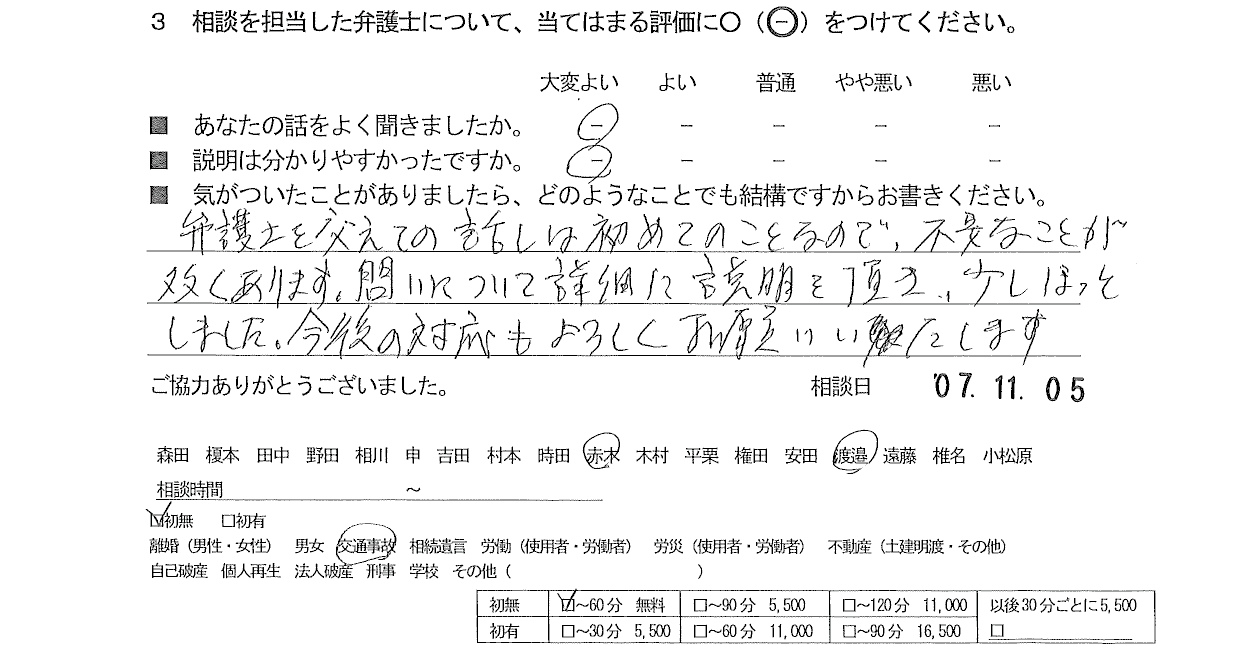 3 相談を担当した弁護士について、当てはまる評価に○（㊀）をつけてください。
大変よい よい 普通 やや悪い 悪い
■ あなたの話をよく聞きましたか。 － － － － －
■ 説明は分かりやすかったですか。 － － － － －
■ 気がついたことがありましたら、どのようなことでも結構ですからお書きください。
弁護士を交えての話しは初めてのことなので、不安なことが
多くあります。問いについて詳細に説明を頂き、少しほっと
しました。今後の対応もよろしくお願いいたします
ご協力ありがとうございました。 相談日 '07. 11. 05
森田 榎本 田中 野田 相川 申 吉田 村本 時田 赤木 木村 平栗 権田 安田 渡邉 遠藤 椎名 小松原
相談時間 ～
☑初無 □初有
離婚（男性・女性） 男女 交通事故 相続遺言 労働（使用者・労働者） 労災（使用者・労働者） 不動産（土建明渡・その他）
自己破産 個人再生 法人破産 刑事 学校 その他（ ）
初無 ☑～60分 無料 □～90分 5,500 □～120分 11,000 以後30分ごとに5,500
初有 □～30分 5,500 □～60分 11,000 □～90分 16,500 □